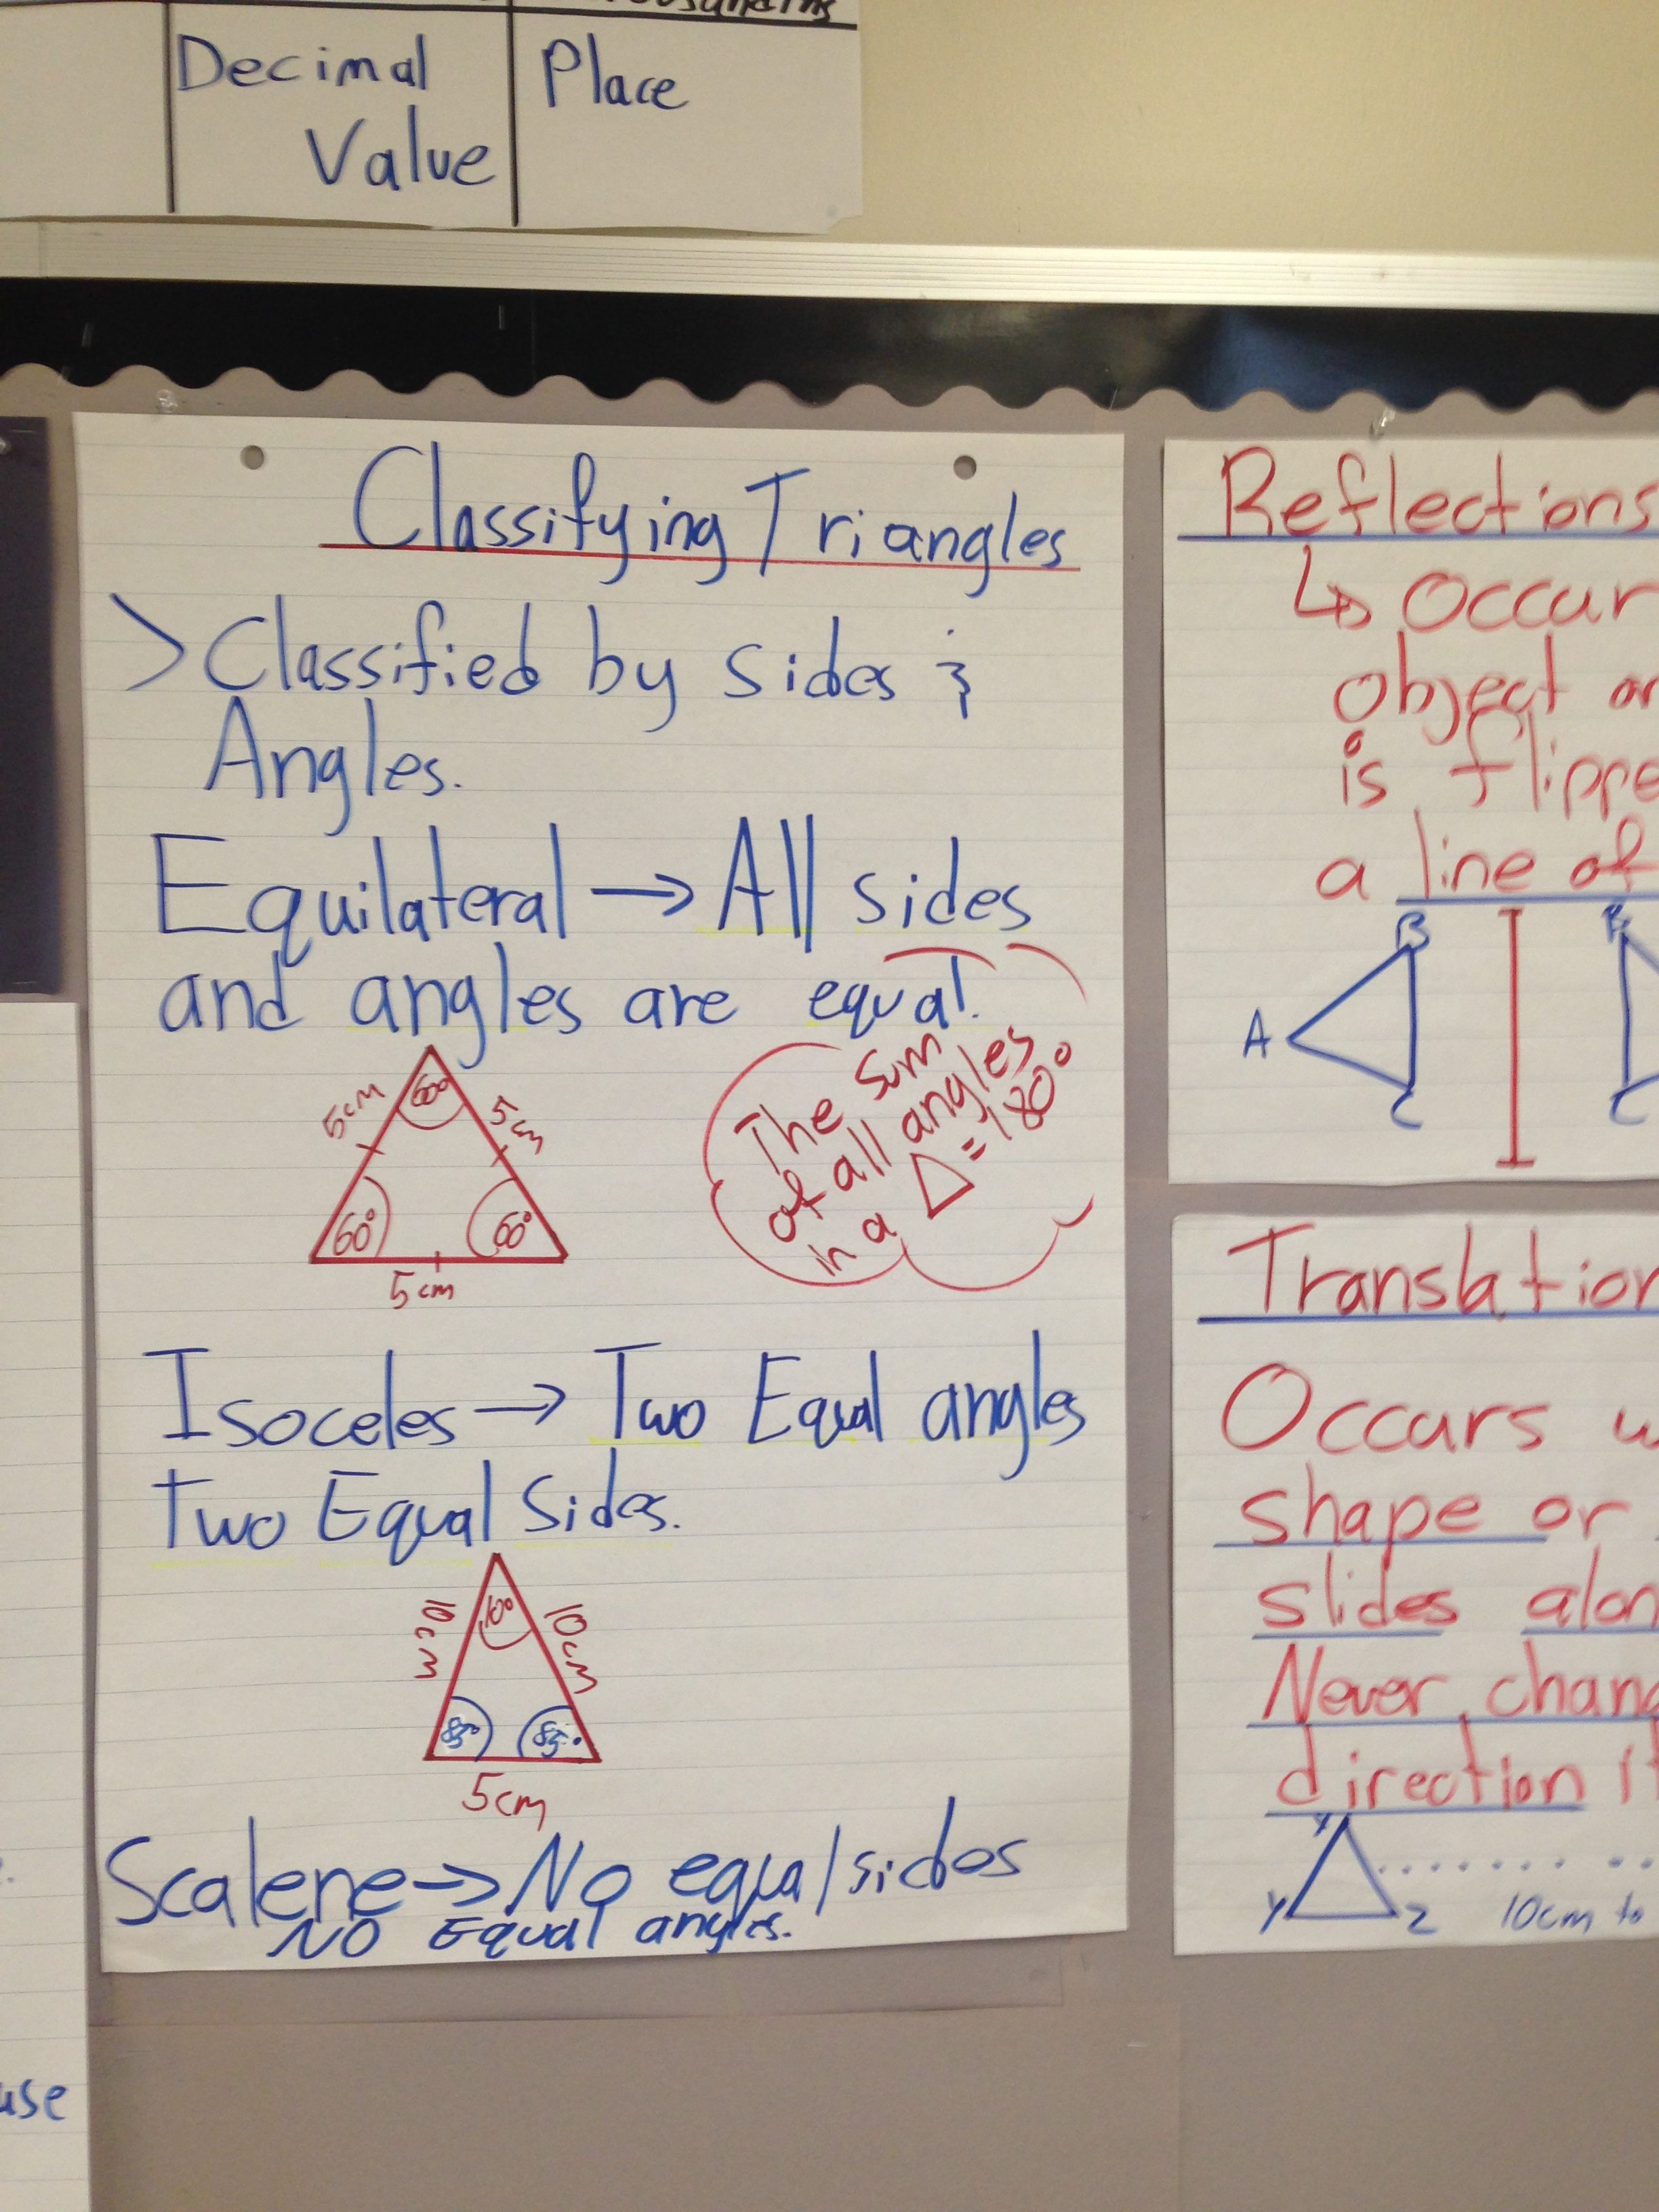 Decimal Place
Value
Classifying Triangles
>Classified by sides &
Angles.
Equilateral → All sides
and angles are equal.
60°
5cm
5cm
60°
60°
5cm
The sum
of all angles
in a △=180°
Isoceles → Two Equal angles
Two Equal Sides.
10°
10cm
10cm
85°
85°
5cm
Scalene → No equal sides
NO Equal angles.
Reflections
↳ Occur
object
is flippe
a line of
B
A
C
B
C
Translation
Occurs w
shape or
slides alon
Never chang
direction it
Y
Y
Z
10cm to
use